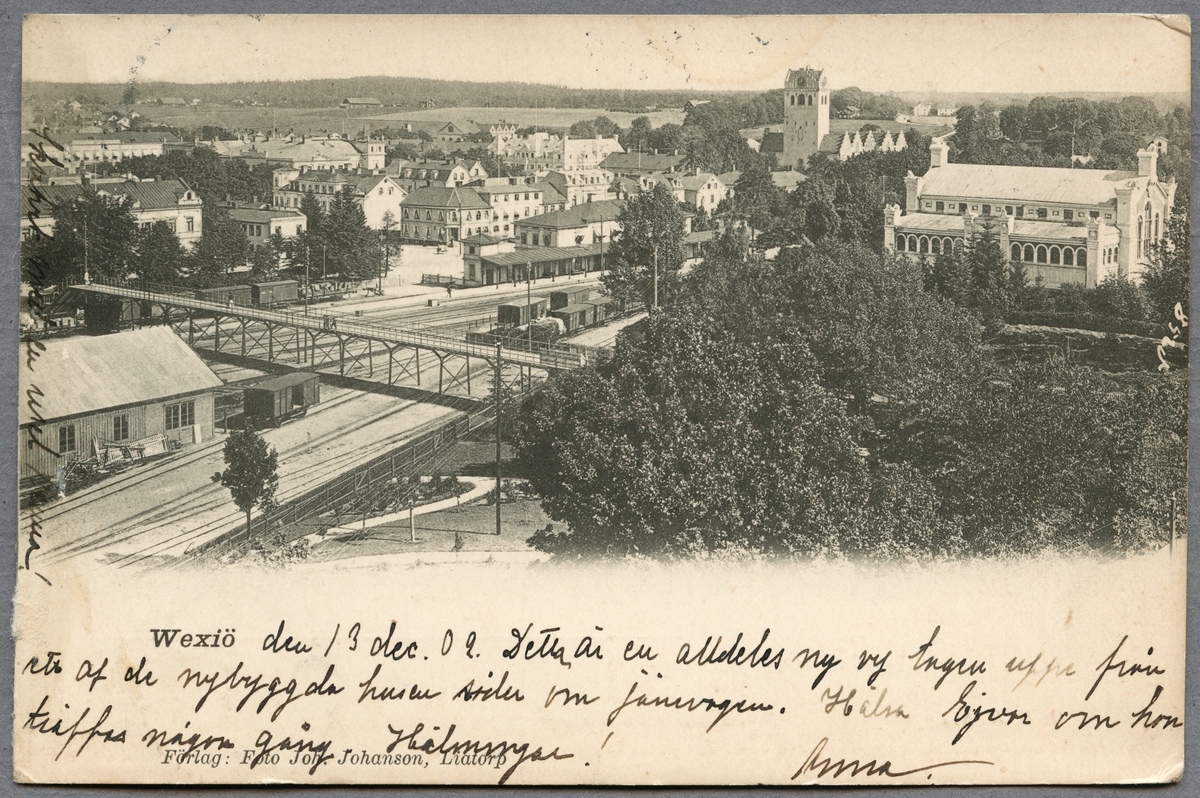 Wexiö den 13 dec. 02. Detta är en alldeles ny vy tagen uppe från
ett af de nybyggda husen söder om järnvägen. Hälsa Ejvor om hon
träffas någon gång. Hälsningar!
Förlag: Foto Joh. Johanson, Liatorp
Anna.